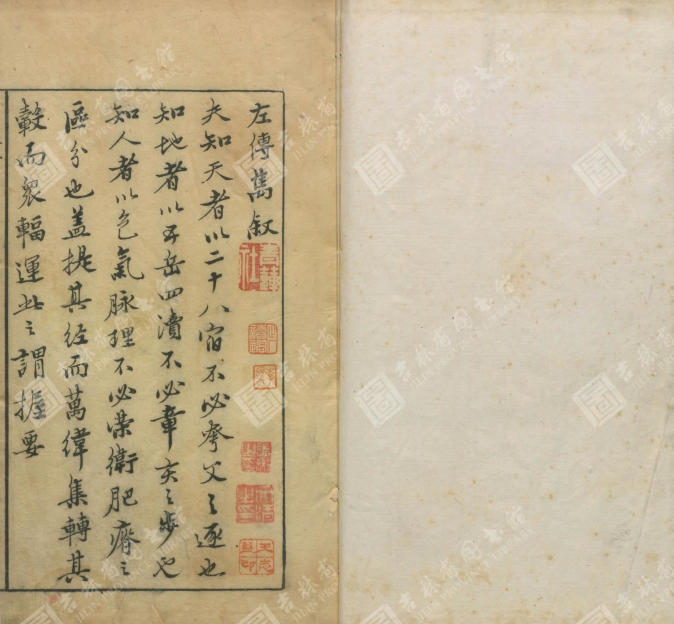 左傳雋敘
夫知天者以二十八宿不必夸父之逐也
知地者以五岳四瀆不必章亥之步也
知人者以色氣脉理不必榮衛肥瘠之
區分也蓋提其經而萬緯集轉其
轂而眾輻運此之謂握要
吉林省圖書館